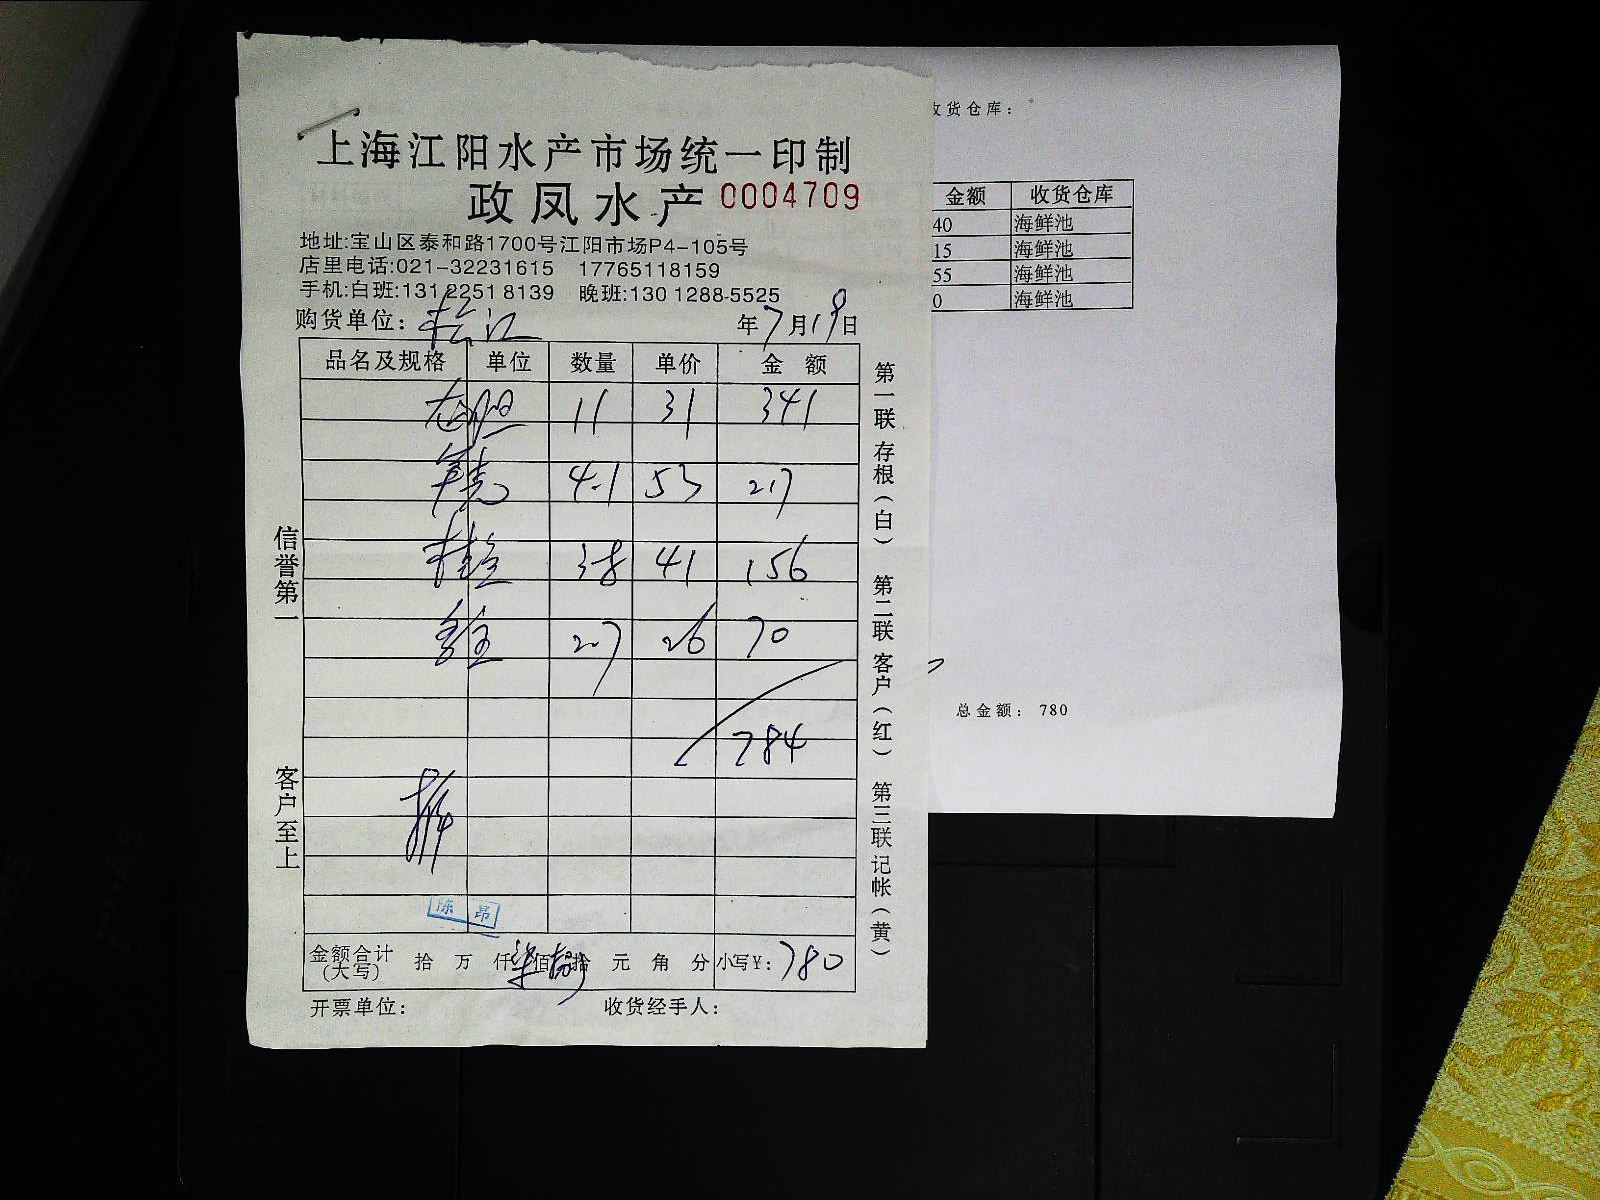 上海江阳水产市场统一印制
政凤水产 0004709
地址:宝山区泰和路1700号江阳市场P4-105号
店里电话:021-32231615 17765118159
手机:白班:131 2251 8139 晚班:130 1288-5525
购货单位: 松江 年7月19日
品名及规格 单位 数量 单价 金额
11 31 341
4.1 53 217
桂鱼 3.8 41 156
2.7 26 70
784
陈昂
金额合计(大写) 拾 万 仟 柒佰 捌拾 元 角 分 小写¥: 780
开票单位: 收货经手人:
信誉第一
客户至上
第一联存根(白) 第二联客户(红) 第三联记帐(黄)
收货仓库:
金额 收货仓库
40 海鲜池
15 海鲜池
55 海鲜池
0 海鲜池
总金额: 780